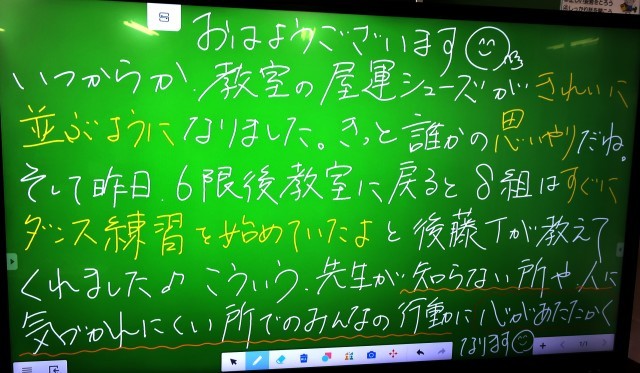 おはようございます
いつからか、教室の屋運シューズがきれいに
並ぶようになりました。きっと誰かの思いやりだね。
そして昨日、6限後教室に戻ると8組はすぐに
ダンス練習を始めていたよと後藤Tが教えて
くれました♪こういう、先生が知らない所や、人に
気づかれにくい所でのみんなの行動に心があたたかく
なります
1/1